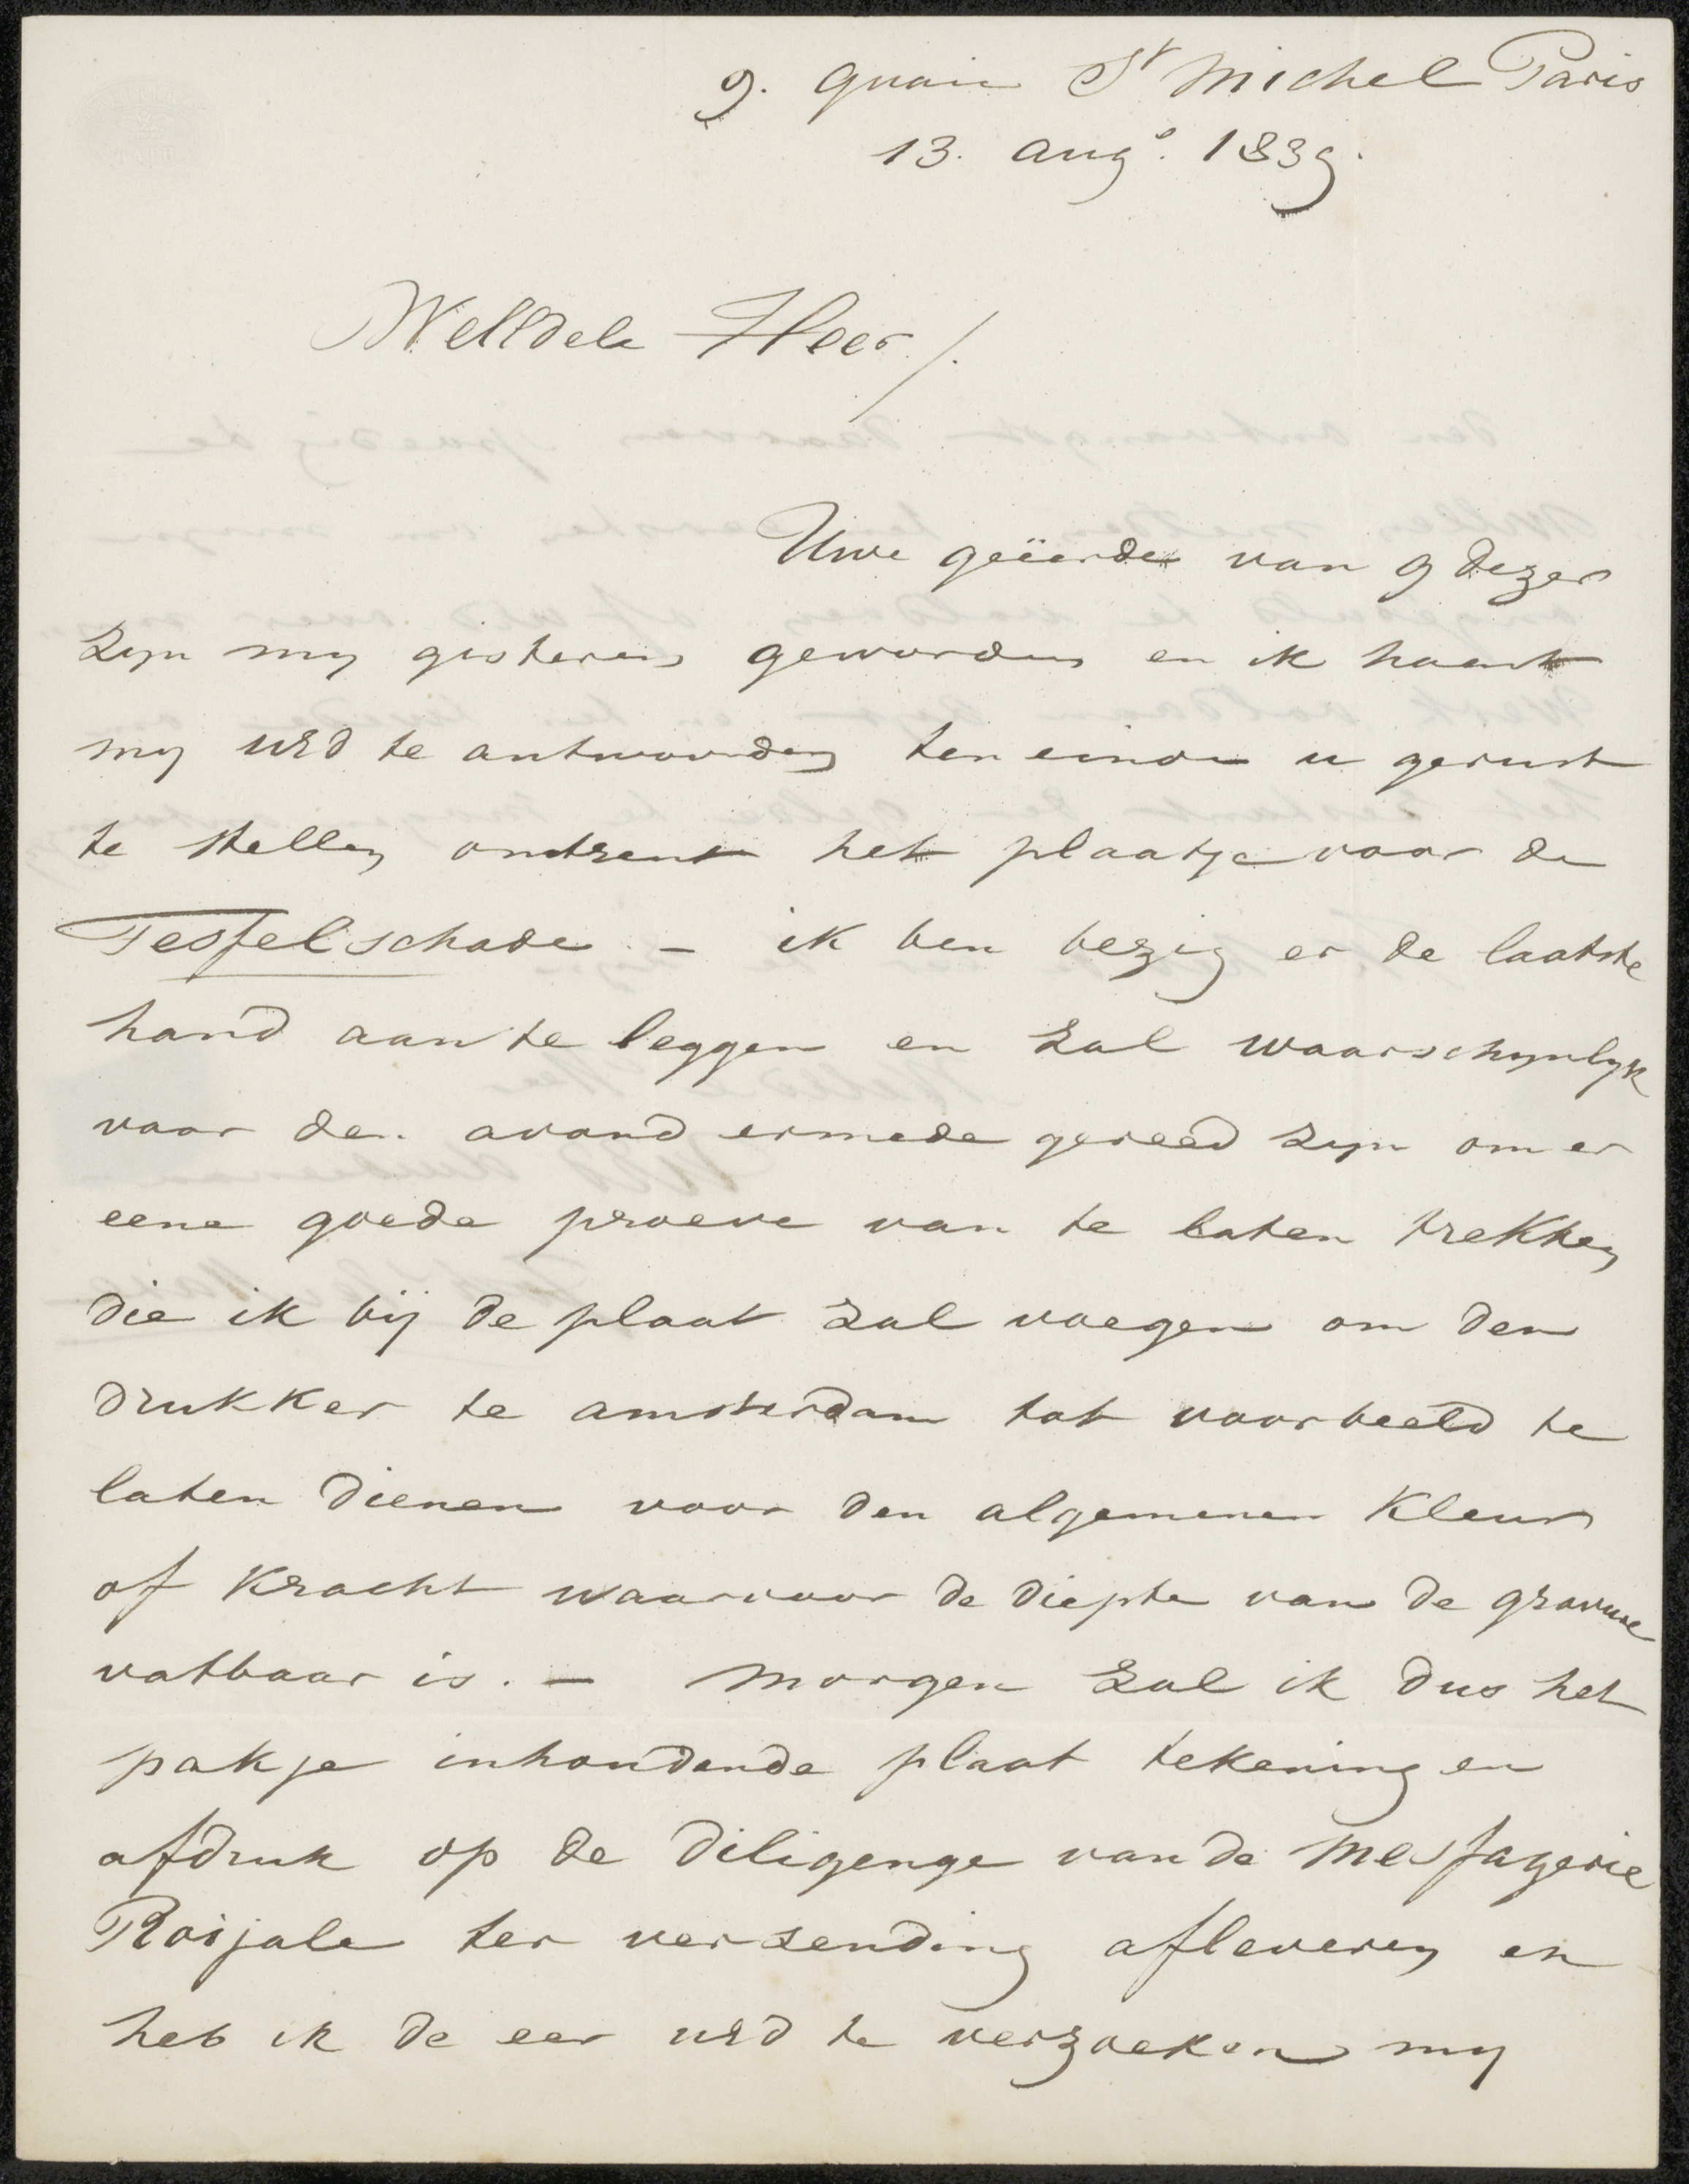 9. quai St Michel Paris
13. augs. 1839.
WelEdele Heer /.
Uwe geëerde van 9 dezer
zyn my gisteren geworden en ik haast
my UEd te antwoorden ten einde u gerust
te stellen omtrent het plaatje voor de
Tesselschade. – ik ben bezig er de laatste
hand aan te leggen en zal waarschynlyk
voor den avond ermede gereed zyn om er
eene goede proeve van te laten trekken
die ik bij de plaat zal voegen om den
drukker te amsterdam tot voorbeeld te
laten dienen voor den algemenen kleur
of kracht waarvoor de diepte van de gravure
vatbaar is. – morgen zal ik dus het
pakje inhoudende plaat tekening en
afdruk op de diligenge van de messagerie
Roijale ter verzending afleveren en
heb ik de eer UEd te verzoeken my